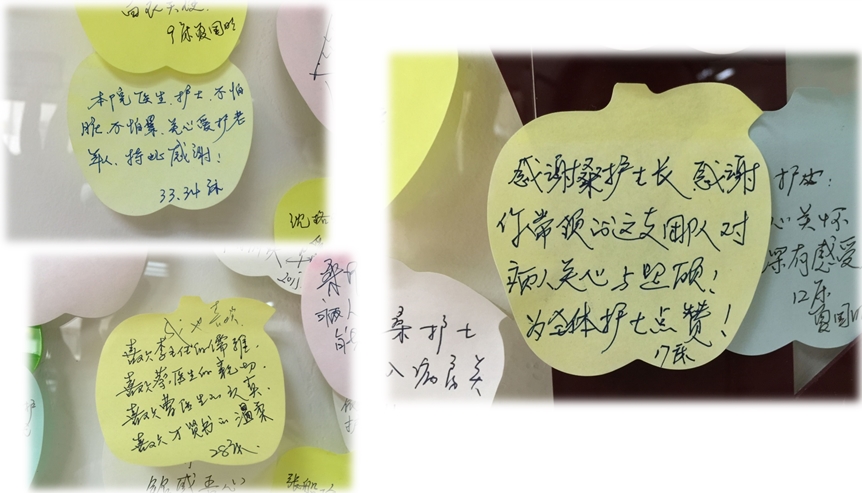 9床夏国明
本院医生、护士、不怕
脏、不怕累、关心爱护老
年人、特此感谢!
33.34床
沈
2013
喜欢李主任的儒雅.
喜欢蔡医生的亲切.
喜欢曹医生的认真.
喜欢才贤弟的温柔
28床.
感谢桑护士长 感谢
你带领的这支团队对
病人关心与照顾!
为全体护士点赞!
17床
桑护士
入病房关
护士:
心关怀
深有感受
12床
夏国明
病人